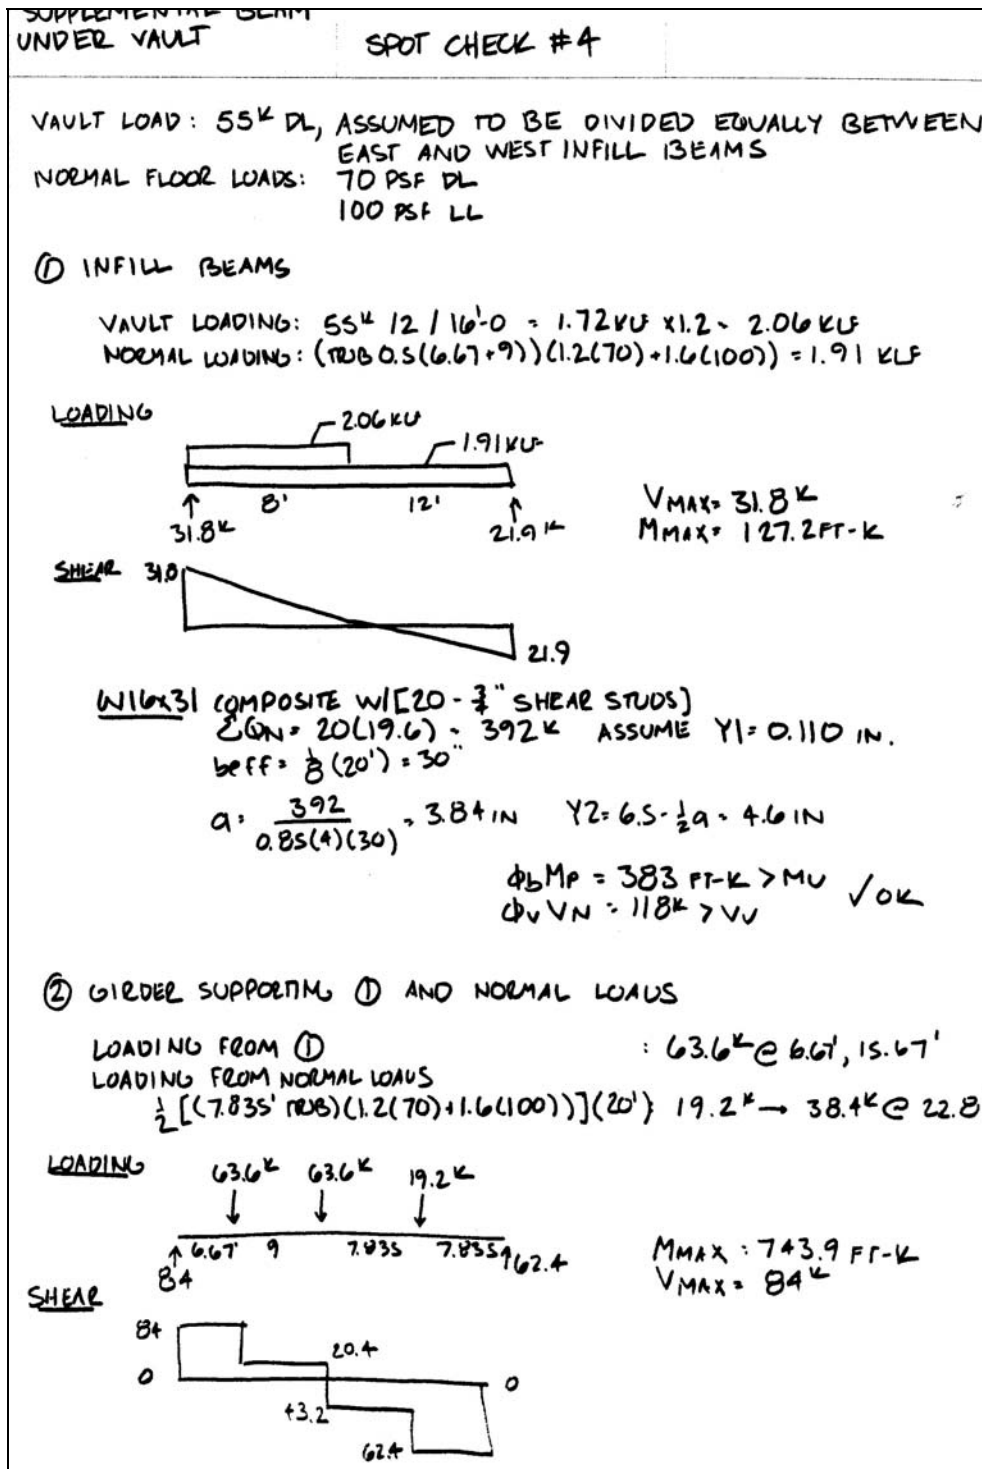 SUPPLEMENTAL BEAM
UNDER VAULT
SPOT CHECK #4
VAULT LOAD: 55K DL, ASSUMED TO BE DIVIDED EQUALLY BETWEEN
EAST AND WEST INFILL BEAMS
NORMAL FLOOR LOADS: 70 PSF DL
100 PSF LL
① INFILL BEAMS
VAULT LOADING: 55K /2 / 16'-0 = 1.72 KLF x1.2 = 2.06 KLF
NORMAL LOADING: (TRIB 0.5(6.67+9))(1.2(70)+1.6(100)) = 1.91 KLF
LOADING
2.06 KLF
1.91 KLF
8' 12'
31.8K 21.9K
VMAX= 31.8K
MMAX= 127.2 FT-K
SHEAR 31.8
21.9
W16x31 COMPOSITE W/[20 - 3/4" SHEAR STUDS]
ΣQN = 20(19.6) = 392K ASSUME Y1 = 0.110 IN.
beff = 1/8 (20') = 30"
a = 392 / 0.85(4)(30) = 3.84 IN Y2 = 6.5 - 1/2 a = 4.6 IN
ΦbMP = 383 FT-K > MU
ΦvVN = 118K > VU
√ OK
② GIRDER SUPPORTING ① AND NORMAL LOADS
LOADING FROM ① : 63.6K @ 6.67', 15.67'
LOADING FROM NORMAL LOADS
1/2 [(7.835' TRIB)(1.2(70)+1.6(100))](20') 19.2K → 38.4K @ 22.8
LOADING
63.6K 63.6K 19.2K
6.67' 9 7.835 7.835
84 62.4
MMAX : 743.9 FT-K
VMAX = 84K
SHEAR
84
20.4
0 0
43.2
62.4